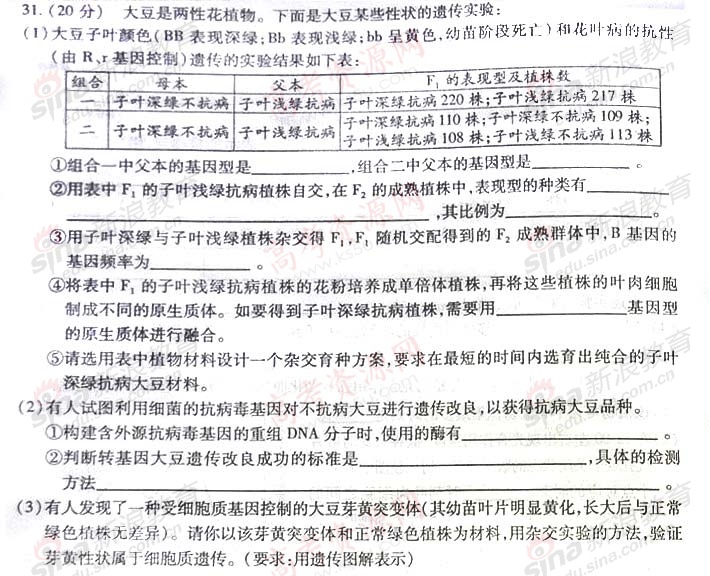 31.(20分) 大豆是两性花植物。下面是大豆某些性状的遗传实验:
(1)大豆子叶颜色(BB表现深绿;Bb表现浅绿;bb呈黄色,幼苗阶段死亡)和花叶病的抗性
(由R、r基因控制)遗传的实验结果如下表:
组合 母本 父本 F₁的表现型及植株数
一 子叶深绿不抗病 子叶浅绿抗病 子叶深绿抗病220株;子叶浅绿抗病217株
二 子叶深绿不抗病 子叶浅绿抗病 子叶深绿抗病110株;子叶深绿不抗病109株;
子叶浅绿抗病108株;子叶浅绿不抗病113株
①组合一中父本的基因型是____________,组合二中父本的基因型是____________。
②用表中F₁的子叶浅绿抗病植株自交,在F₂的成熟植株中,表现型的种类有__________
______________________________,其比例为______________。
③用子叶深绿与子叶浅绿植株杂交得F₁,F₁随机交配得到的F₂成熟群体中,B基因的
基因频率为__________。
④将表中F₁的子叶浅绿抗病植株的花粉培养成单倍体植株,再将这些植株的叶肉细胞
制成不同的原生质体。如要得到子叶深绿抗病植株,需要用____________基因型
的原生质体进行融合。
⑤请选用表中植物材料设计一个杂交育种方案,要求在最短的时间内选育出纯合的子叶
深绿抗病大豆材料。
(2)有人试图利用细菌的抗病毒基因对不抗病大豆进行遗传改良,以获得抗病大豆品种。
①构建含外源抗病毒基因的重组DNA分子时,使用的酶有__________________。
②判断转基因大豆遗传改良成功的标准是____________________,具体的检测
方法____________________________________________________。
(3)有人发现了一种受细胞质基因控制的大豆芽黄突变体(其幼苗叶片明显黄化,长大后与正常
绿色植株无差异)。请你以该芽黄突变体和正常绿色植株为材料,用杂交实验的方法,验证
芽黄性状属于细胞质遗传。(要求:用遗传图解表示)